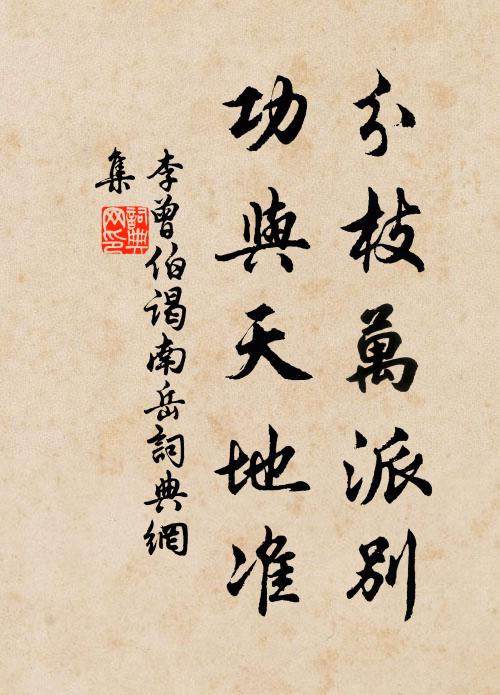 分枝萬派別
功與天地准
李曾伯謁南岳詞典網
集
詞典
网印